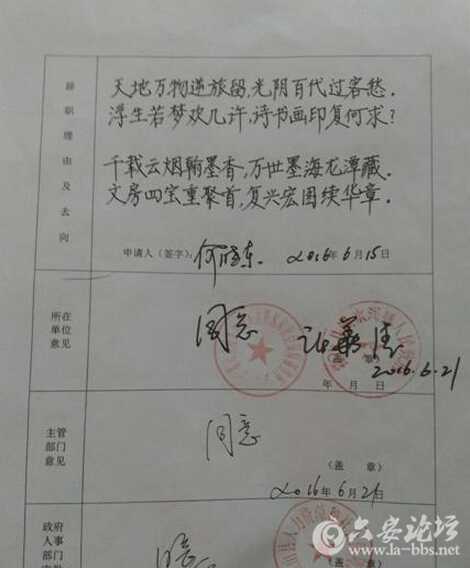 辞职理由及去向
天地万物逆旅留,光阴百代过客愁.
浮生若梦欢几许,诗书画印复何求?
千载云烟翰墨香,万世墨海龙潭藏.
文房四宝重聚首,复兴宏图续华章.
申请人(签字):何 东. 2016年6月15日
所在
单位
意见
同意
2016.6.21
年 月 日
主管
部门
意见
同意
(盖 章)
2016年6月21日
政府
人事
部门
同意
六安论坛
www.la-bbs.net